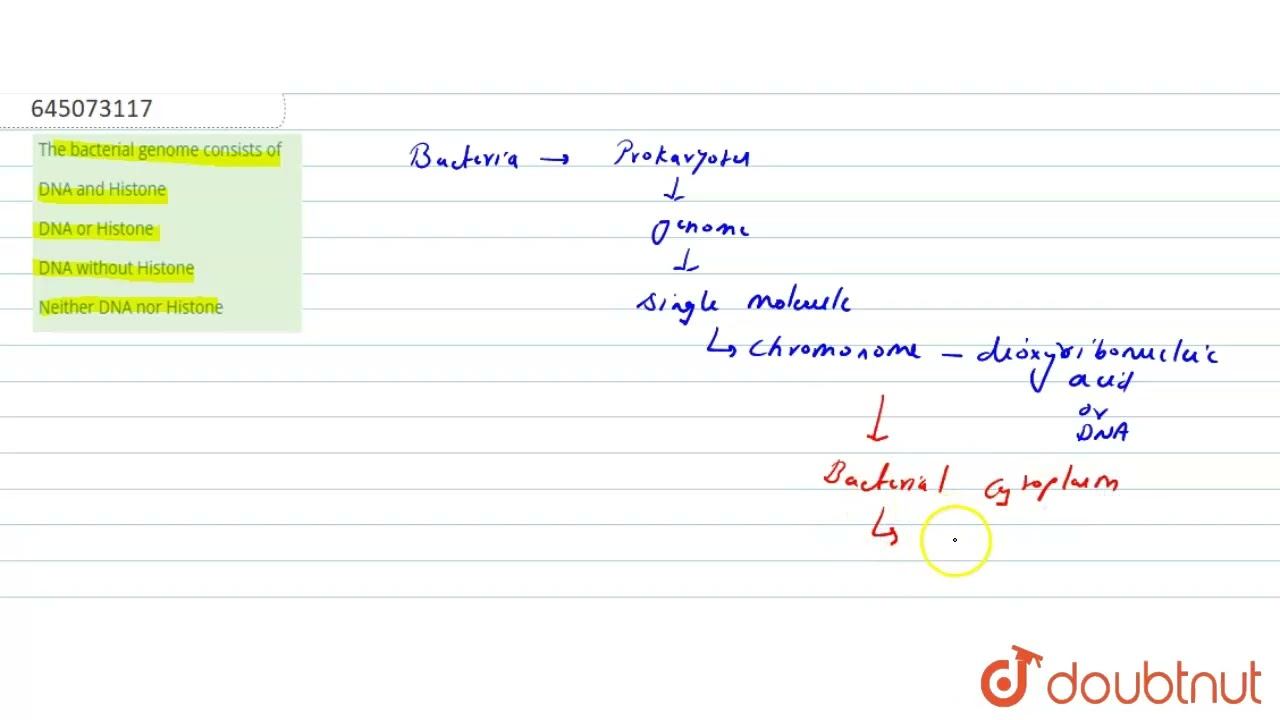 645073117
The bacterial genome consists of
DNA and Histone
DNA or Histone
DNA without Histone
Neither DNA nor Histone
Bacteria → Prokaryotes
↓
genome
↓
single molecule
↳ chromosome – deoxyribonucleic
acid
or
DNA
↓
Bacterial cytoplasm
↳
doubtnut